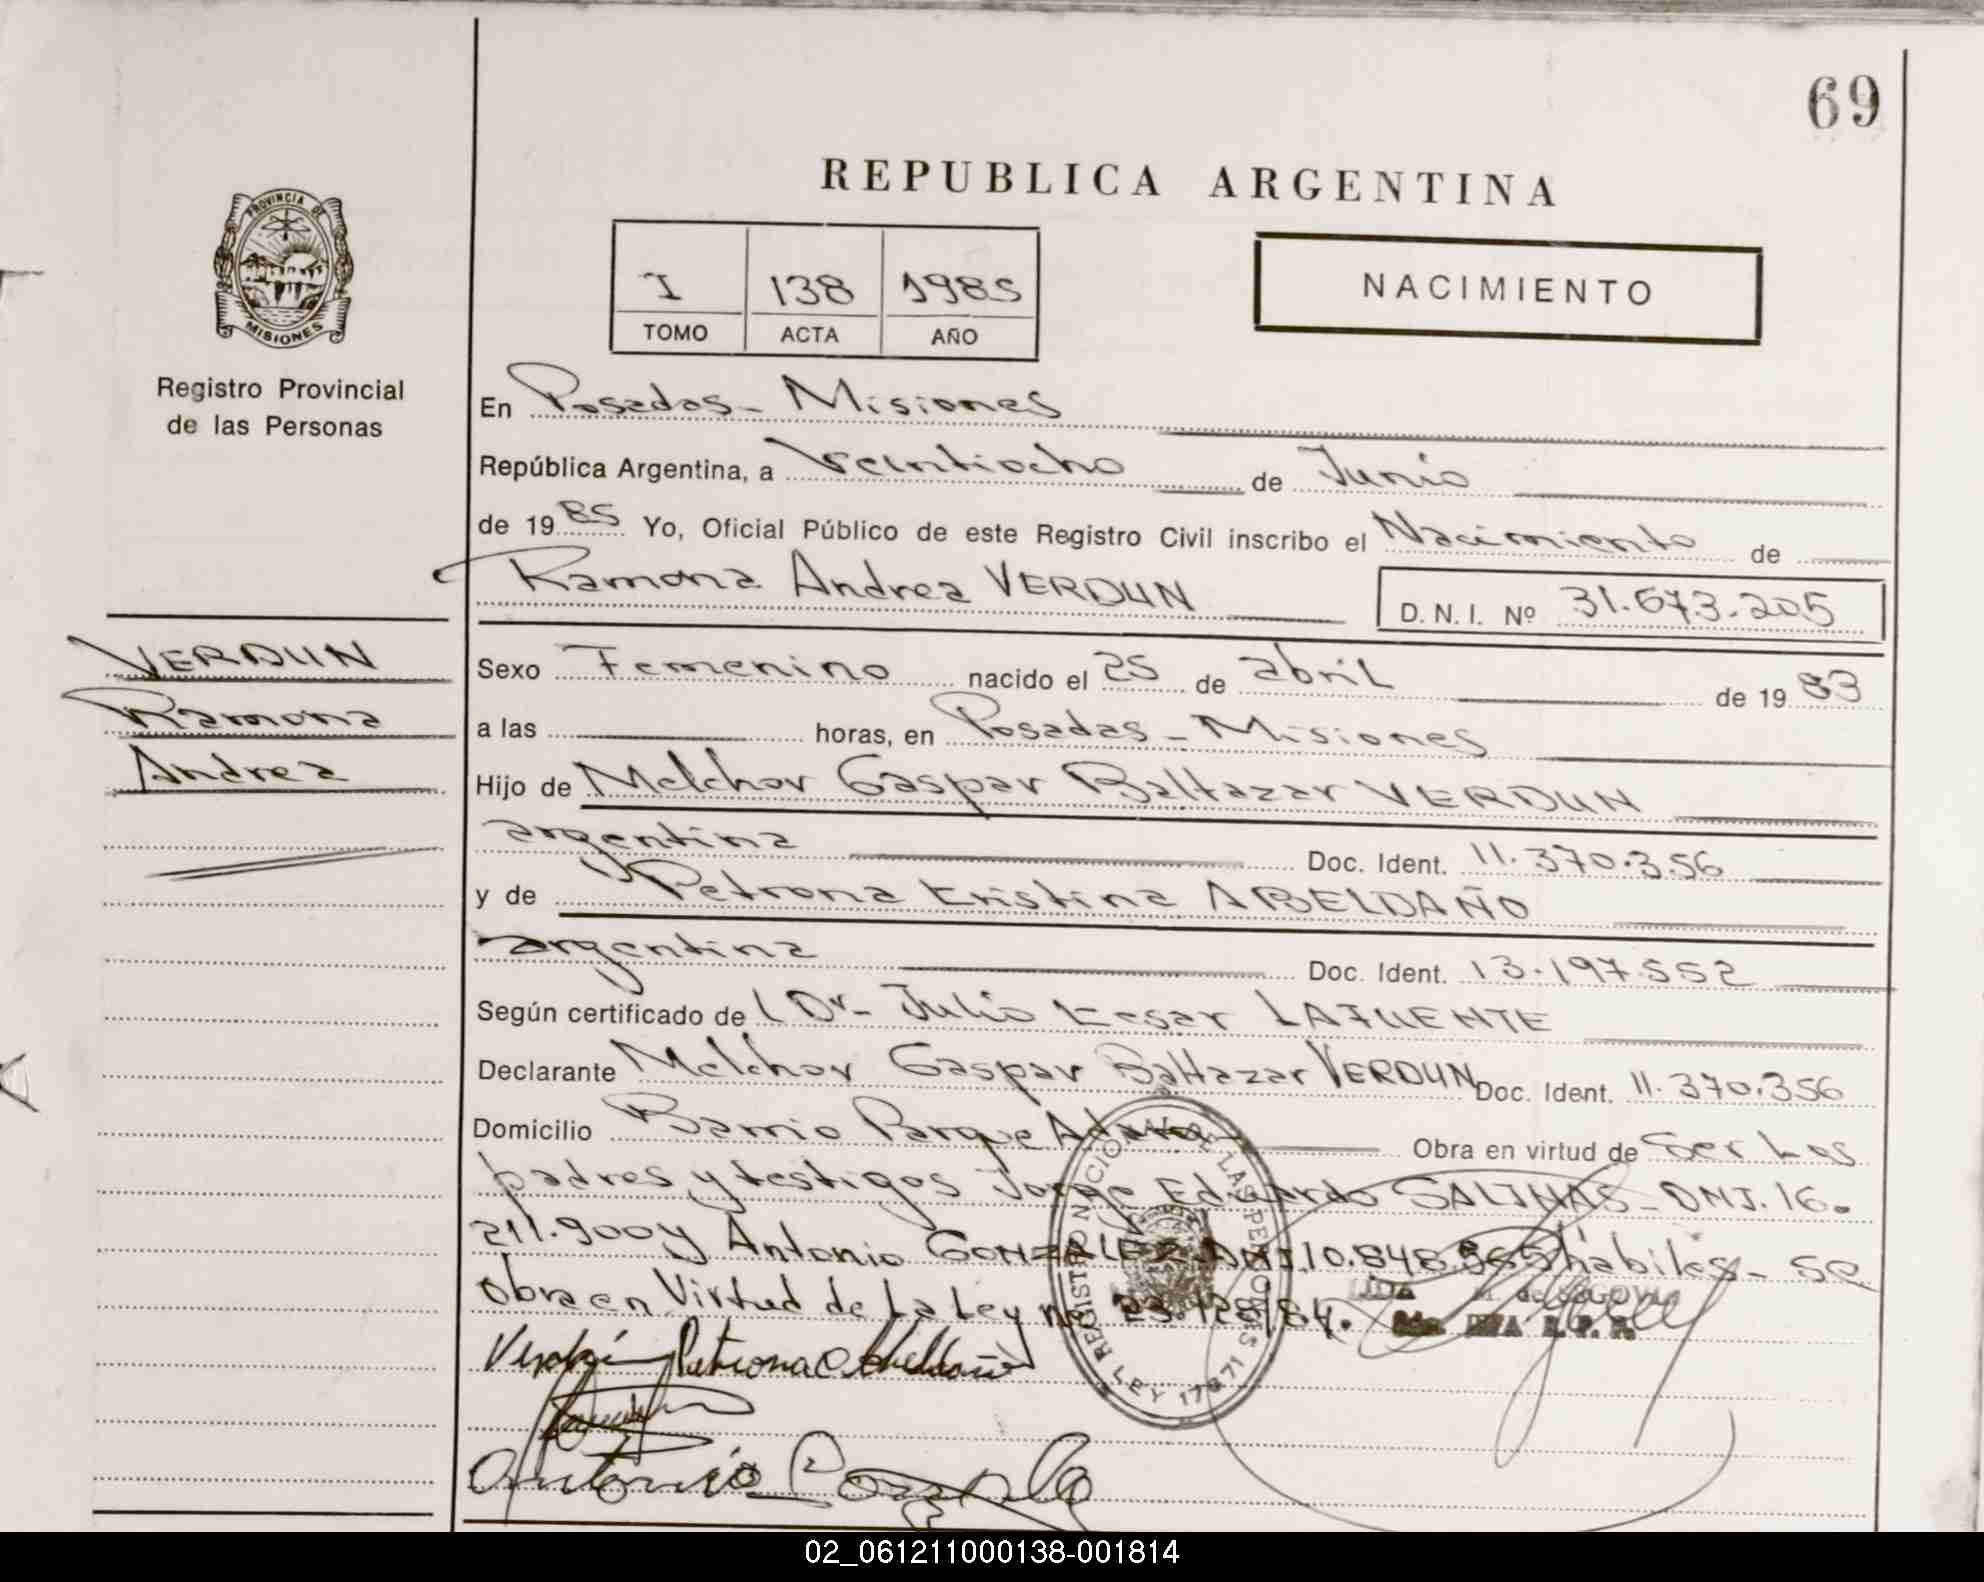 69
REPUBLICA ARGENTINA
PROVINCIA DE
MISIONES
Registro Provincial
de las Personas
I 138 1985
TOMO ACTA AÑO
NACIMIENTO
En Posadas - Misiones
República Argentina, a Veintiocho de Junio
de 1985 Yo, Oficial Público de este Registro Civil inscribo el Nacimiento de
Ramona Andrea VERDUN D.N.I. Nº 31.673.205
VERDUN
Ramona
Andrea
Sexo Femenino nacido el 25 de abril de 1983
a las horas, en Posadas - Misiones
Hijo de Melchor Gaspar Baltazar VERDUN
argentina Doc. Ident. 11.370.356
y de Petrona Cristina ABELDAÑO
argentina Doc. Ident. 13.197.552
Según certificado de l Dr. Julio Cesar LAFUENTE
Declarante Melchor Gaspar Baltazar VERDUN Doc. Ident. 11.370.356
Domicilio Barrio Parque Adam Obra en virtud de Ser Los
padres y testigos Jorge Eduardo SALINAS - DNI. 16.
211.900 y Antonio GONZALEZ DNI. 10.848.365 habiles - se
obra en Virtud de La Ley nº 23.128/84.
REGISTRO NACIONAL DE LAS PERSONAS
LEY 17671
LIDA M. de SEGOVIA
R. P. P.
Verdún Petrona C Abeldaño
Antonio Gonzalez
02_061211000138-001814